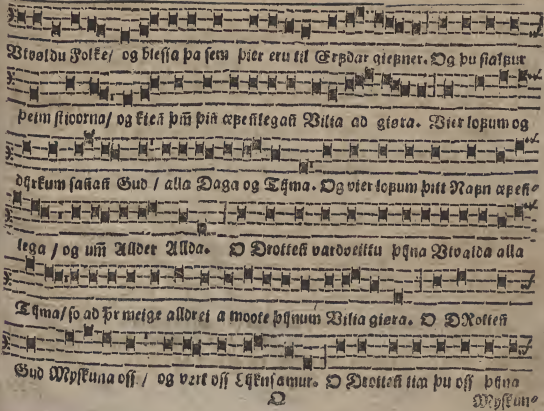 Vtvøldu Folke/ og blessa þa sem þier eru til Erfdar giefner. Og þu sialfur
þeim stioorna/ og kieñ þm̃ þiñ æfeñlegañ Vilia ad giøra. Vier lofum og
dyrkum sañañ Gud / alla Daga og Tÿma. Og vier lofum þitt Nafn æfeñ⸗
lega / og um̃ Allder Allda. O Drotteñ vardveittu þÿna Vtvalda alla
Tÿma/ so ad þr meige alldrei a moote þÿnum Vilia giøra. O DRotteñ
Gud Myskuna oss / og vert oss Lÿknsamur. O Drotteñ þu oss þÿna
O
Myskun⸗